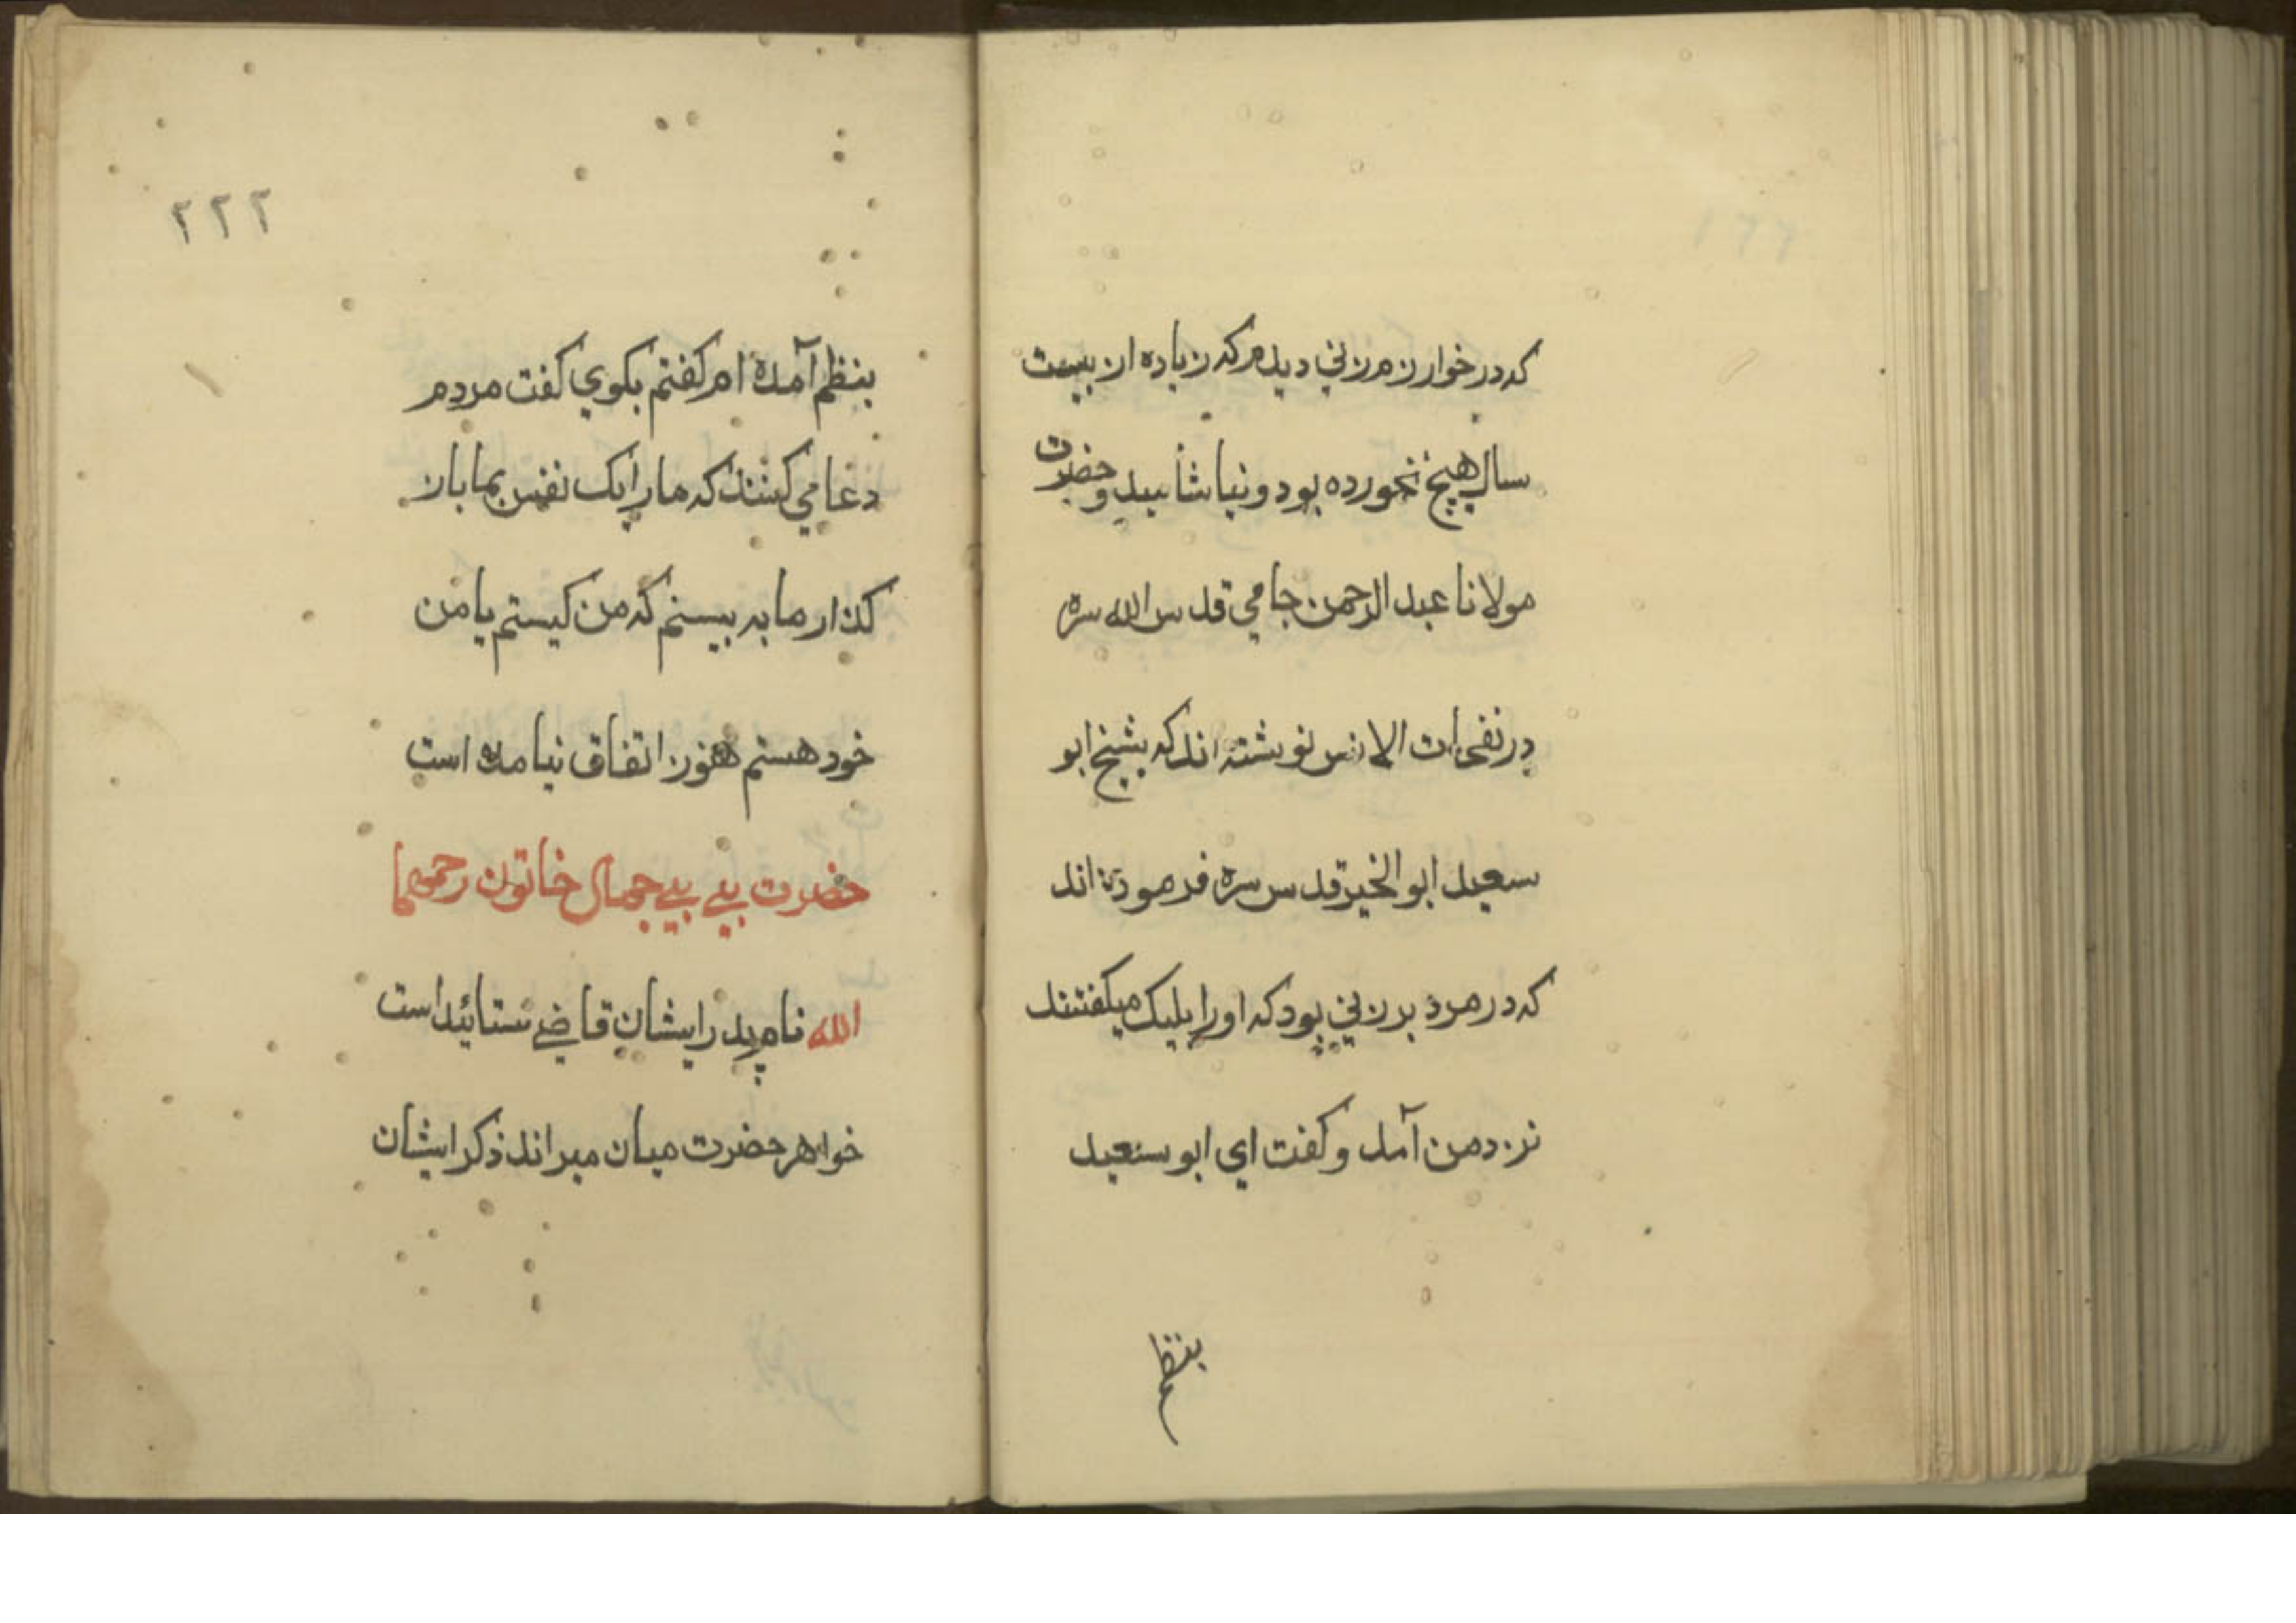 که در خوارزم زني ديدم که زياده از بيست
سال هيچ نخورده بود و نياشاميد و حضرت
مولانا عبد الرحمن جامي قدس الله سره
در نفحات الانس نوشته اند که شيخ ابو
سعيد ابو الخير قدس سره فرموده اند
که در مرو پرزني بود که او را بيک ميکفتند
نزد من آمد و کفت اي ابو سعيد
بتظلم
۲۲۲
بتظلم آمده ام کفتم بکوي کفت مردم
دعا مي کنند که ما را يک نفس بما باز
کذار ما به بينم که من کيستم يا من
خود هستم هنوز اتفاق نيامده است
حضرت بي بي جمال خاتون رحمهما
الله نام پدر ايشان قاضي ستائيد است
خواهر حضرت ميان مير اند ذکر ايشان